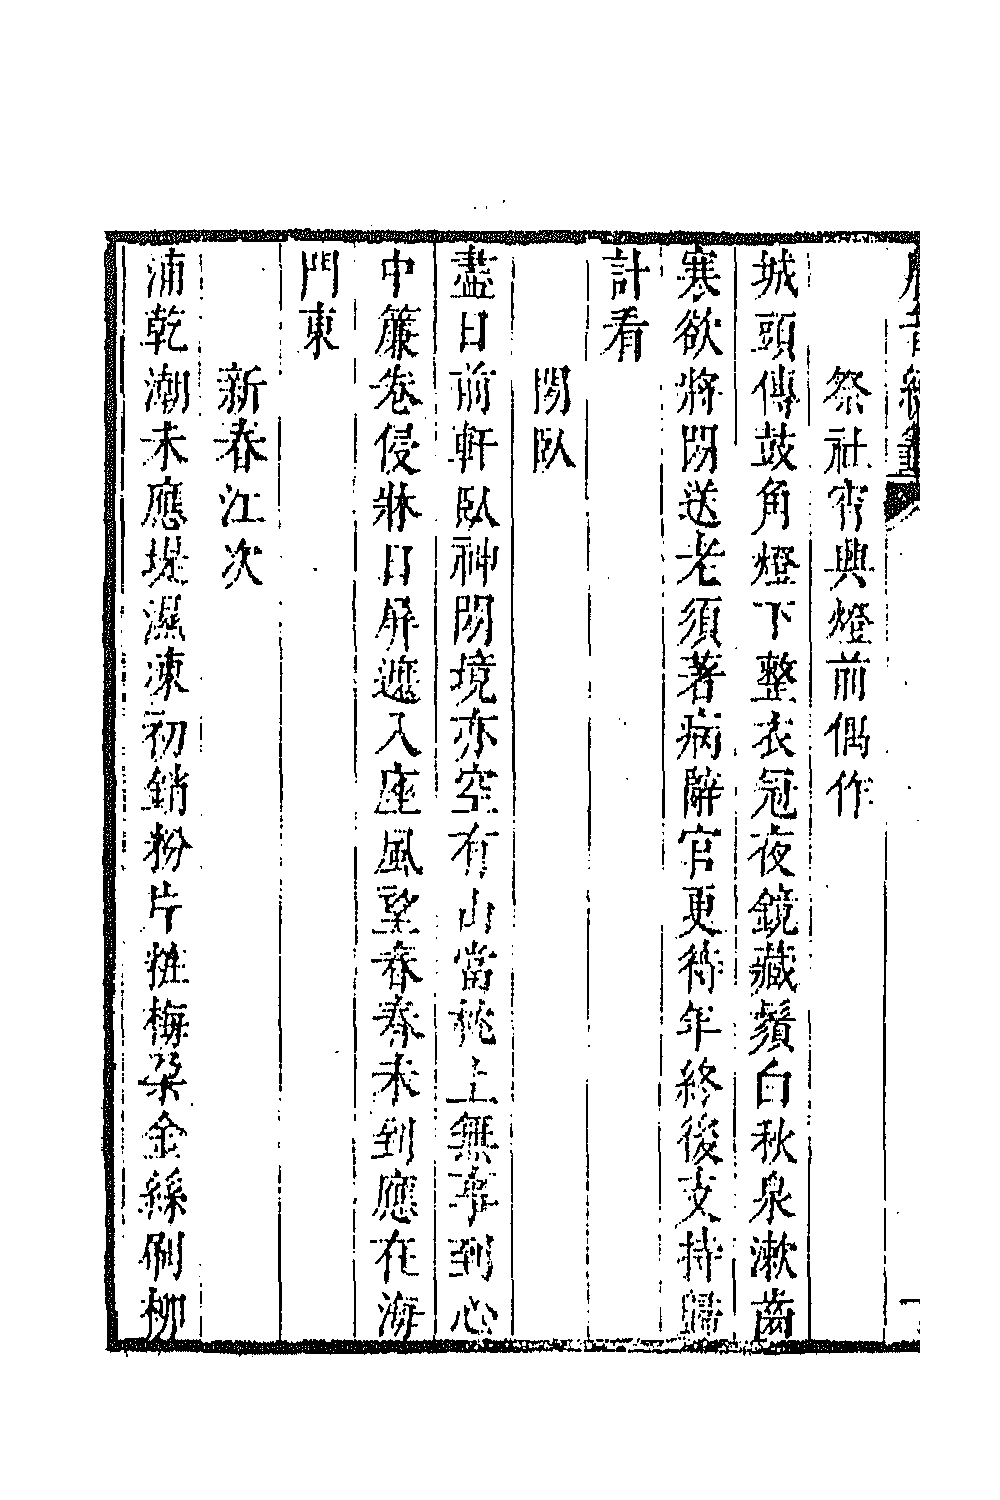 祭社宵興燈前偶作
城頭傳鼓角燈下整衣冠夜鏡藏鬚白秋泉漱齒
寒欲將閒送老須著病辭官更待年終後支持歸
計看
閒臥
盡日前軒臥神閒境亦空有山當枕上無事到心
中簾卷侵牀日屏遮入座風望春春未到應在海
門東
新春江次
浦乾潮未應堤濕凍初銷粉片粧梅朶金絲刷柳